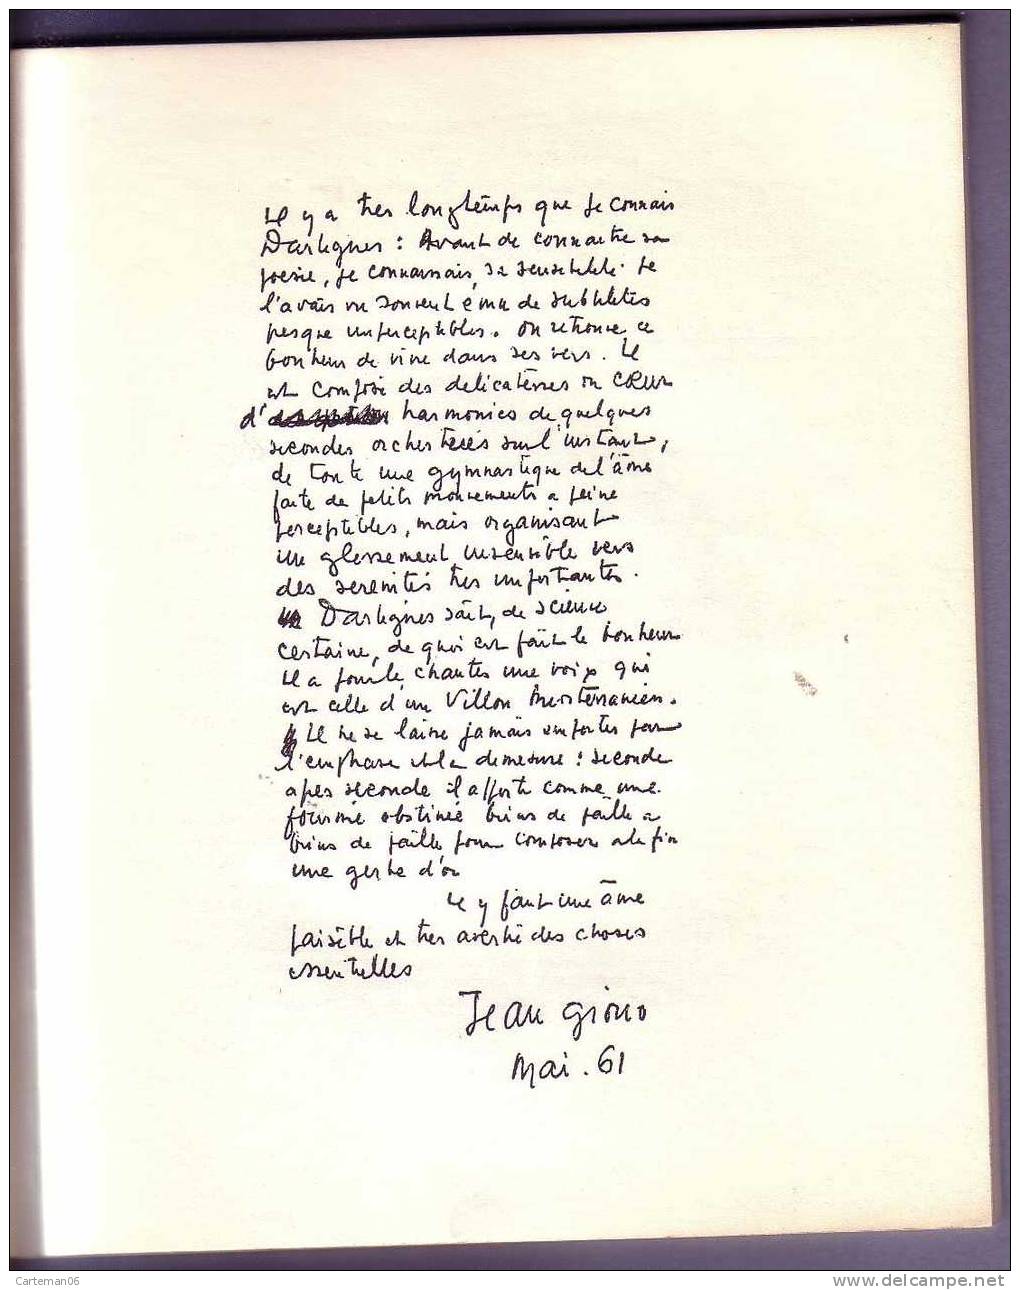 Il y a très longtemps que je connais
Dartignes : Avant de connaitre sa
poésie, je connaissais sa sensibilité. Je
l'avais vu souvent ému de subtilités
presque imperceptibles. On retrouve ce
bonheur de vivre dans ses vers. Il
est composé des delicatesses du cœur
d' harmonies de quelques
secondes orchestrées sur l'instant,
de toute une gymnastique de l'âme
faite de petits mouvements a peine
perceptibles, mais organisant
un glissement insensible vers
des serenités tres importantes.
sait, de science
certaine, de quoi est fait le bonheur
il a pour le chanter une voix qui
est celle d'un Villon Mediterranéen.
Il ne se laisse jamais emporter par
l'emphase et la demesure : seconde
apres seconde il apporte comme une
fourmie obstinée brins de paille a
brins de paille pour composer a la fin
une gerbe d'or
Il y faut une âme
paisible et tres avertie des choses
essentielles
Jean Giono
Mai . 61
Carteman06
www.delcampe.net